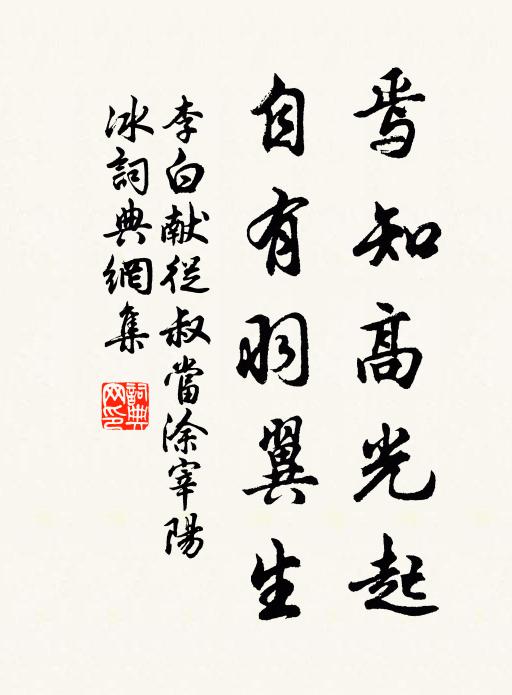 焉知高光起
自有羽翼生
李白献從叔當涂宰陽
冰詞典網集
詞典
网印